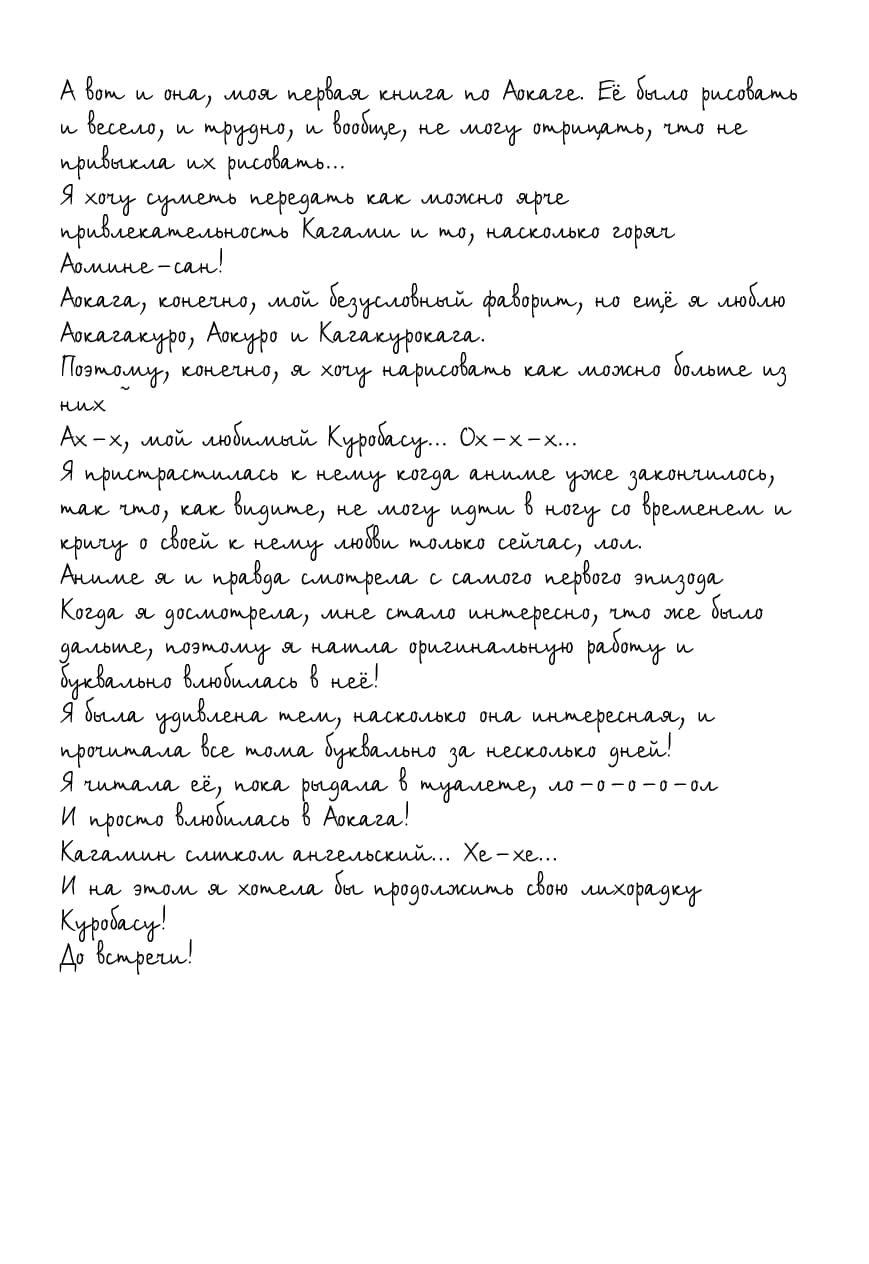 А вот и она, моя первая книга по Аокаге. Её было рисовать
и весело, и трудно, и вообще, не могу отрицать, что не
привыкла их рисовать...
Я хочу суметь передать как можно ярче
привлекательность Кагами и то, насколько горяч
Аомине-сан!
Аокага, конечно, мой безусловный фаворит, но ещё я люблю
Аокагакуро, Аокуро и Кагакурокага.
Поэтому, конечно, я хочу нарисовать как можно больше из
них~
Ах-х, мой любимый Куробасу... Ох-х-х...
Я пристрастилась к нему когда аниме уже закончилось,
так что, как видите, не могу идти в ногу со временем и
кричу о своей к нему любви только сейчас, лол.
Аниме я и правда смотрела с самого первого эпизода
Когда я досмотрела, мне стало интересно, что же было
дальше, поэтому я нашла оригинальную работу и
буквально влюбилась в неё!
Я была удивлена тем, насколько она интересная, и
прочитала все тома буквально за несколько дней!
Я читала её, пока рыдала в туалете, ло-о-о-о-ол
И просто влюбилась в Аокага!
Кагамин слшком ангельский... Хе-хе...
И на этом я хотела бы продолжить свою лихорадку
Куробасу!
До встречи!